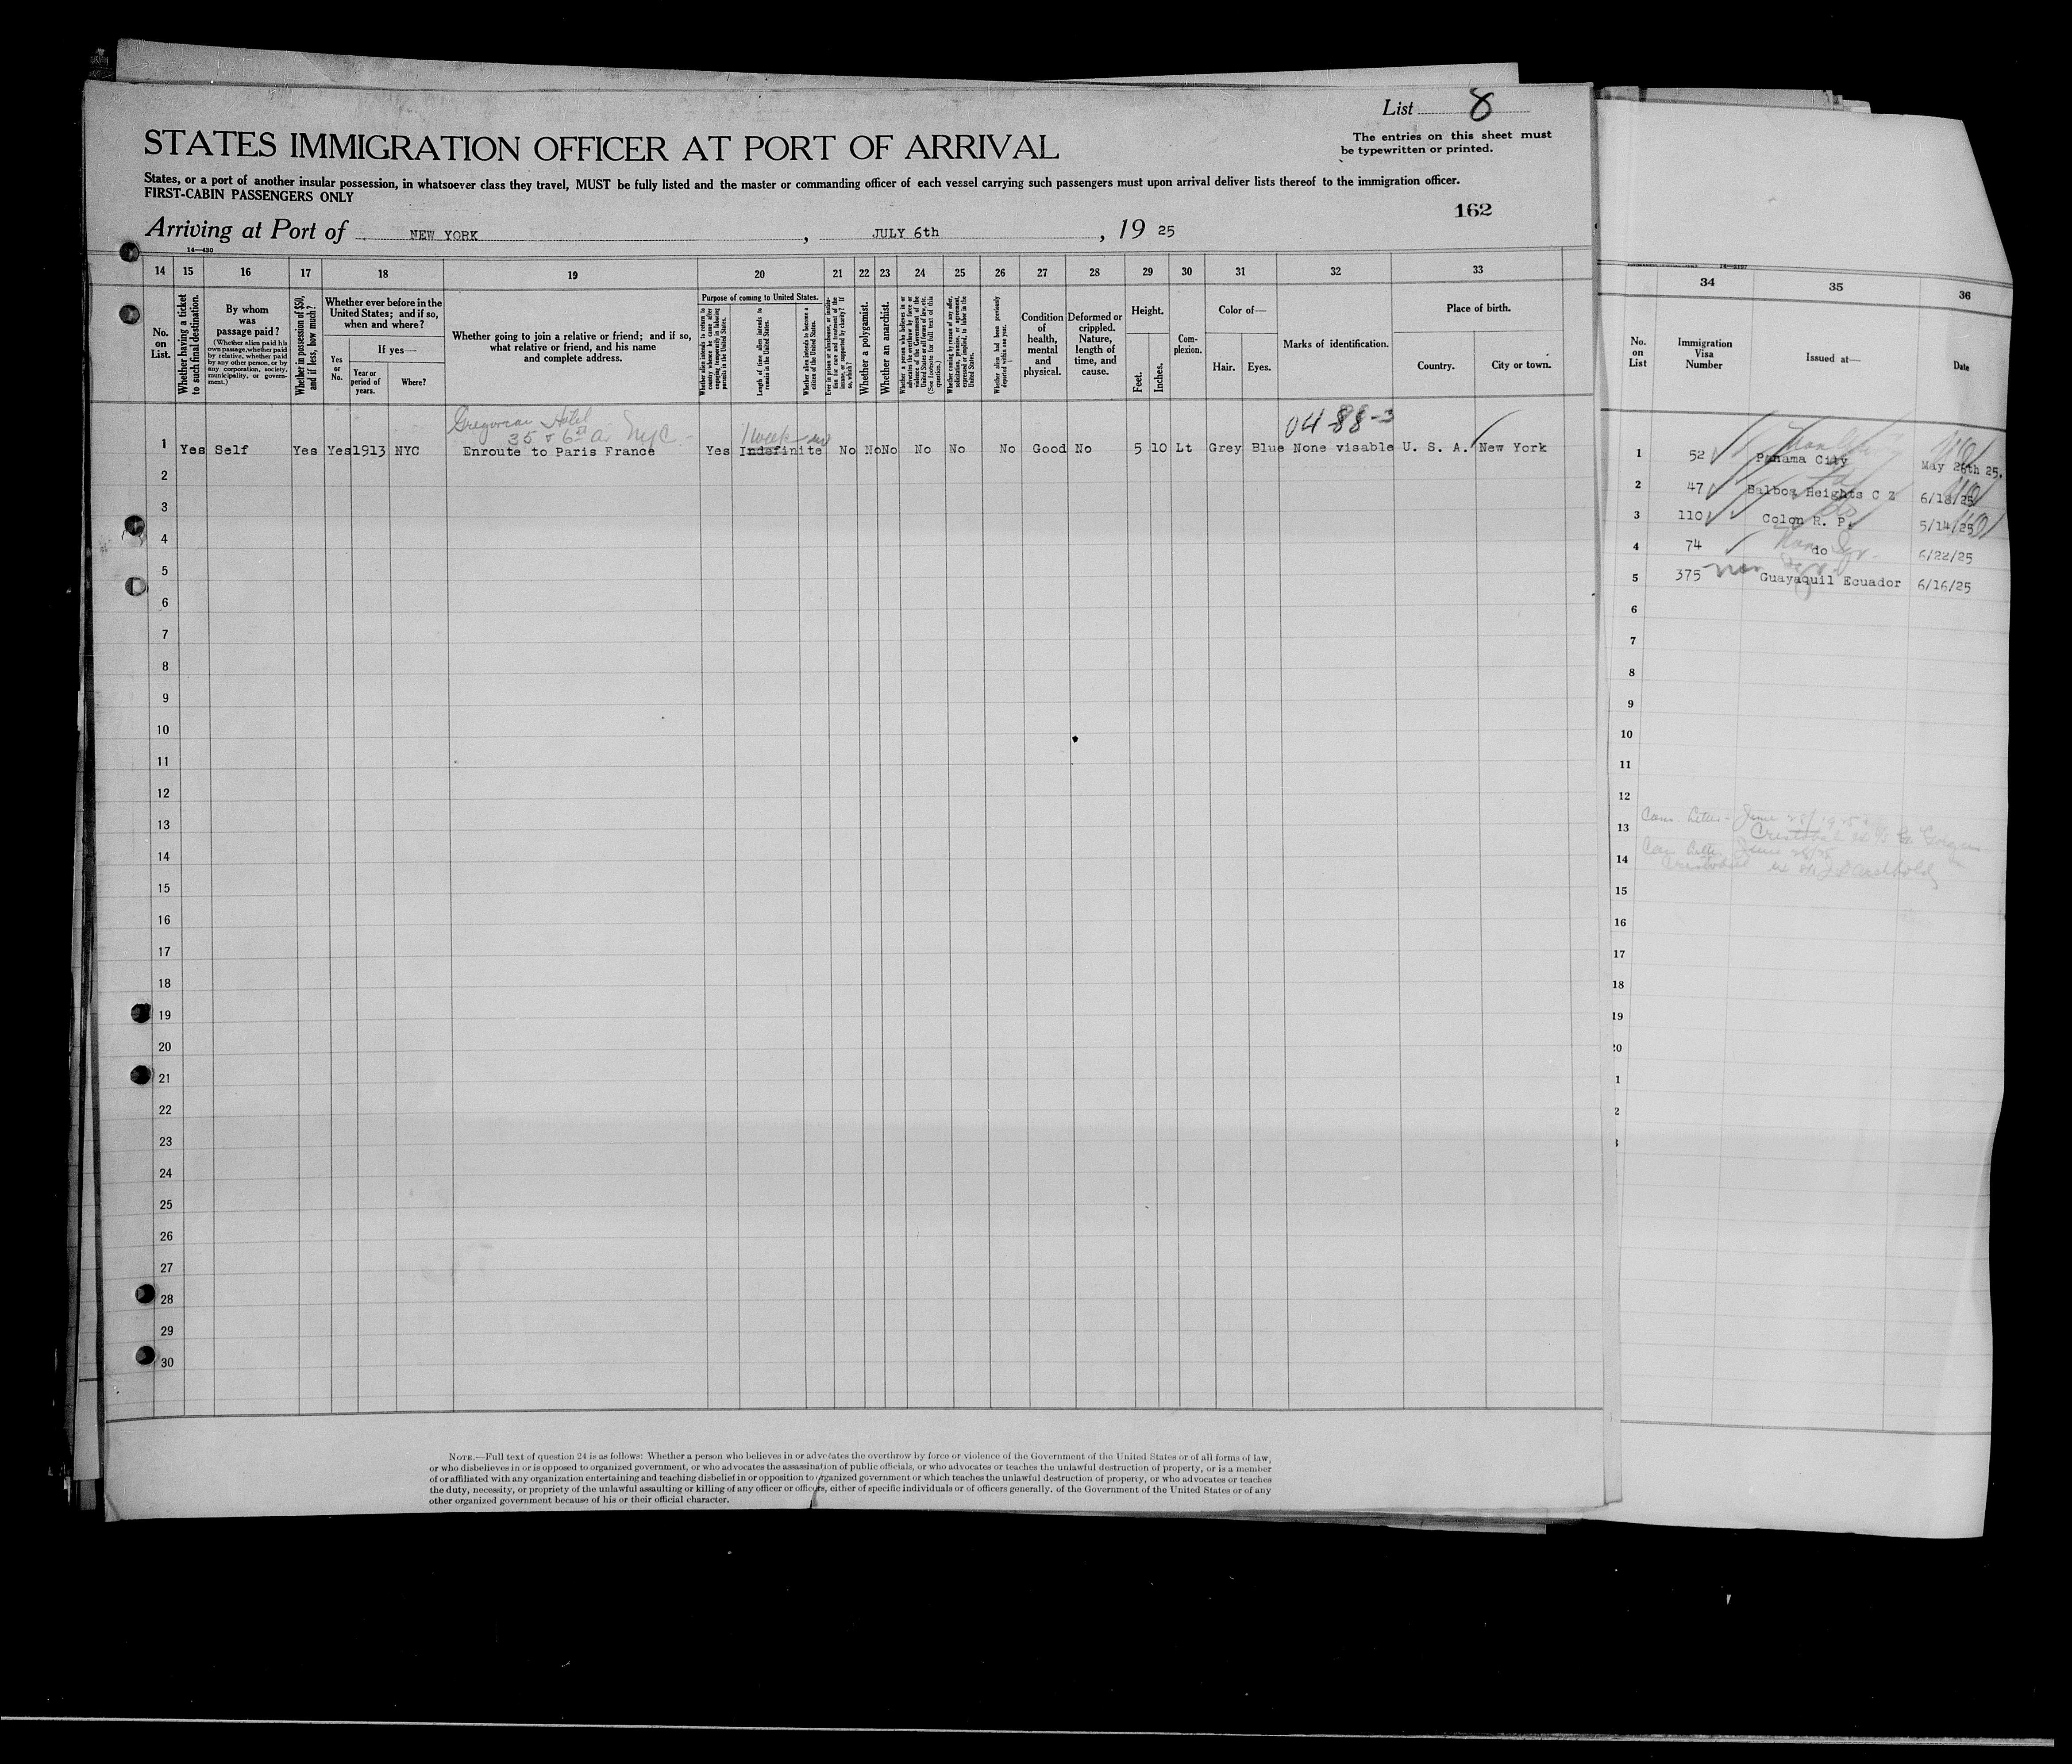 List 8
STATES IMMIGRATION OFFICER AT PORT OF ARRIVAL
The entries on this sheet must
be typewritten or printed.
States, or a port of another insular possession, in whatsoever class they travel, MUST be fully listed and the master or commanding officer of each vessel carrying such passengers must upon arrival deliver lists thereof to the immigration officer.
FIRST-CABIN PASSENGERS ONLY
162
Arriving at Port of NEW YORK, JULY 6th, 19 25
14—430
14 15 16 17 18 19 20 21 22 23 24 25 26 27 28 29 30 31 32 33
No. on List.
Whether having a ticket to such final destination.
By whom was passage paid?
(Whether alien paid his own passage, whether paid by relative, whether paid by any other person, or by any corporation, society, municipality, or government.)
Whether in possession of $50, and if less, how much?
Whether ever before in the United States; and if so, when and where?
Yes or No.
If yes—
Year or period of years.
Where?
Whether going to join a relative or friend; and if so, what relative or friend, and his name and complete address.
Purpose of coming to United States.
Whether alien intends to return to country whence he came after engaging temporarily in laboring pursuits in the United States.
Length of time alien intends to remain in the United States.
Whether alien intends to become a citizen of the United States.
Whether a polygamist.
Whether an anarchist.
Whether alien had been previously deported within one year.
Condition of health, mental and physical.
Deformed or crippled. Nature, length of time, and cause.
Height.
Feet. Inches.
Complexion.
Color of—
Hair. Eyes.
Marks of identification.
Place of birth.
Country. City or town.
Gregorian Hotel
35 & 6th Av NYC
1 week
04-88-3
1 Yes Self Yes Yes 1913 NYC Enroute to Paris France Yes Indefinite No No No No No No Good No 5 10 Lt Grey Blue None visable U. S. A. New York
2
3
4
5
6
7
8
9
10
11
12
13
14
15
16
17
18
19
20
21
22
23
24
25
26
27
28
29
30
NOTE.—Full text of question 24 is as follows: Whether a person who believes in or advocates the overthrow by force or violence of the Government of the United States or of all forms of law,
or who disbelieves in or is opposed to organized government, or who advocates the assassination of public officials, or who advocates or teaches the unlawful destruction of property, or is a member
of or affiliated with any organization entertaining and teaching disbelief in or opposition to organized government or which teaches the unlawful destruction of property, or who advocates or teaches
the duty, necessity, or propriety of the unlawful assaulting or killing of any officer or officers, either of specific individuals or of officers generally. of the Government of the United States or of any
other organized government because of his or their official character.
34 35 36
No. on List
Immigration Visa Number
Issued at—
Date
1 52 Panama City May 26th 25.
2 47 Balboa Heights C Z 6/18/25
3 110 Colon R. P. 5/14/25
4 74 do 6/22/25
5 375 Guayaquil Ecuador 6/16/25
6
7
8
9
10
11
12
13
14
15
16
17
18
19
20
1
2
3